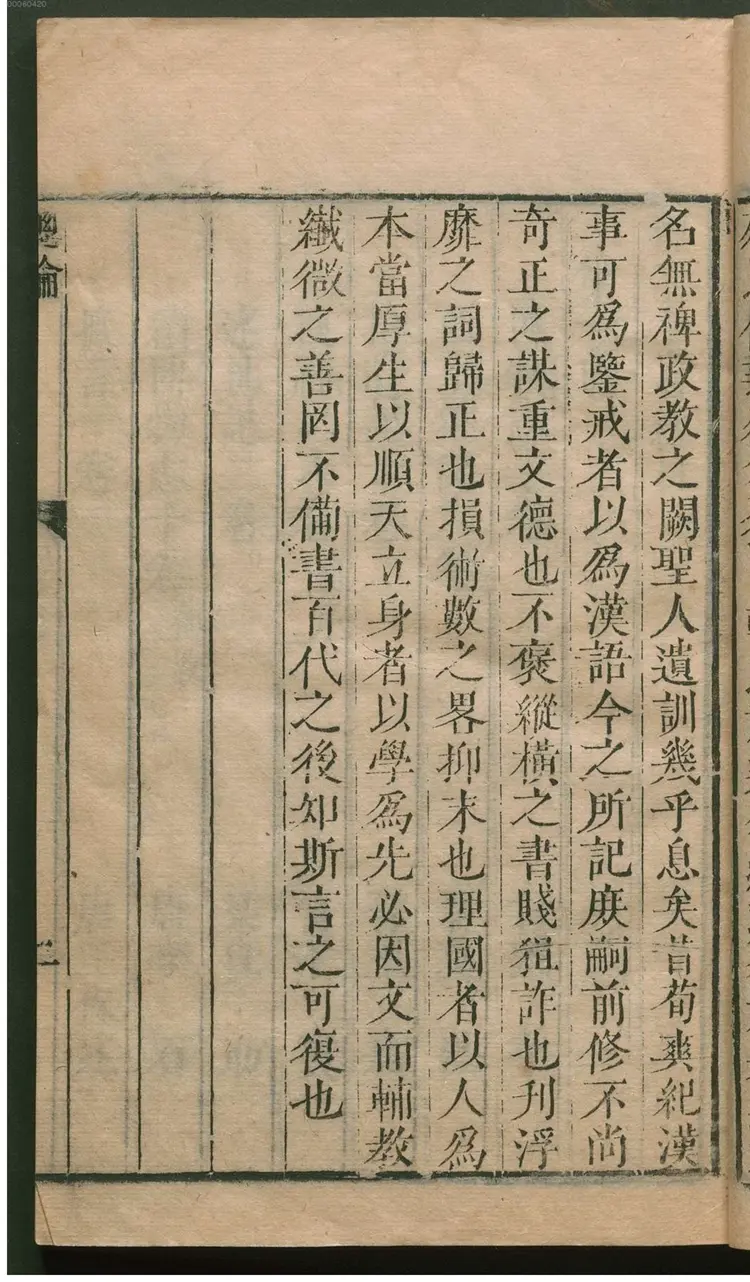 名無裨政教之闕聖人遺訓幾乎息矣昔荀爽紀漢
事可爲鑒戒者以爲漢語今之所記庶嗣前修不尚
奇正之謀重文德也不褒縱横之書賤狙詐也刋浮
靡之詞歸正也損術數之畧抑末也理國者以人爲
本當厚生以順天立身者以學爲先必因文而輔教
纎微之善罔不備書百代之後知斯言之可復也
總論
二
00060420